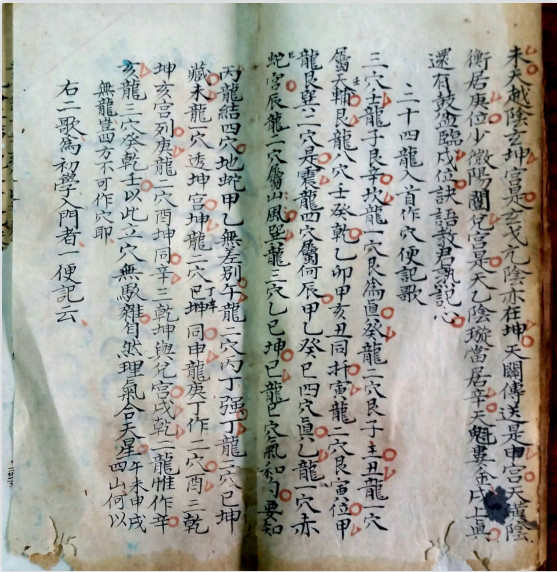 未天越陰玄坤宮是玄戈亢陰亦在坤天關傳送是申宮天越陰
衡居庚位少微陽闔兌宮是天乙陰璇當居辛天魁婁金戌上真
還有鼓盆臨戌位訣語教君熟記心
二十四龍入首作穴便記歌
三穴壬龍子艮辛坎龍一穴艮為真癸龍二穴艮子主丑龍一穴
屬天輔艮龍八穴壬癸乾乙卯甲亥丑同扦寅龍二穴艮寅位甲
龍艮巽六一穴是震龍四穴屬何辰甲乙癸巳四穴真乙龍一穴赤
蛇宮辰龍一穴屬山風巽龍三穴乙巳坤巳龍巳穴氣和同要知
丙龍結四穴地蛇甲乙無差別午龍二穴內丁強丁龍二穴巳坤
藏未龍一穴透坤宮坤龍二穴巳坤同申龍庚丁作二穴酉三乾
坤亥宮列庚龍二穴酉坤同辛三乾坤與兌宮戌乾一龍惟作辛
亥龍一穴癸乾壬以此立穴無駁雜自然理氣合天星午未申戌四山何以
無龍豈四方不可作穴耶
右二歌為初學入門者一便記云